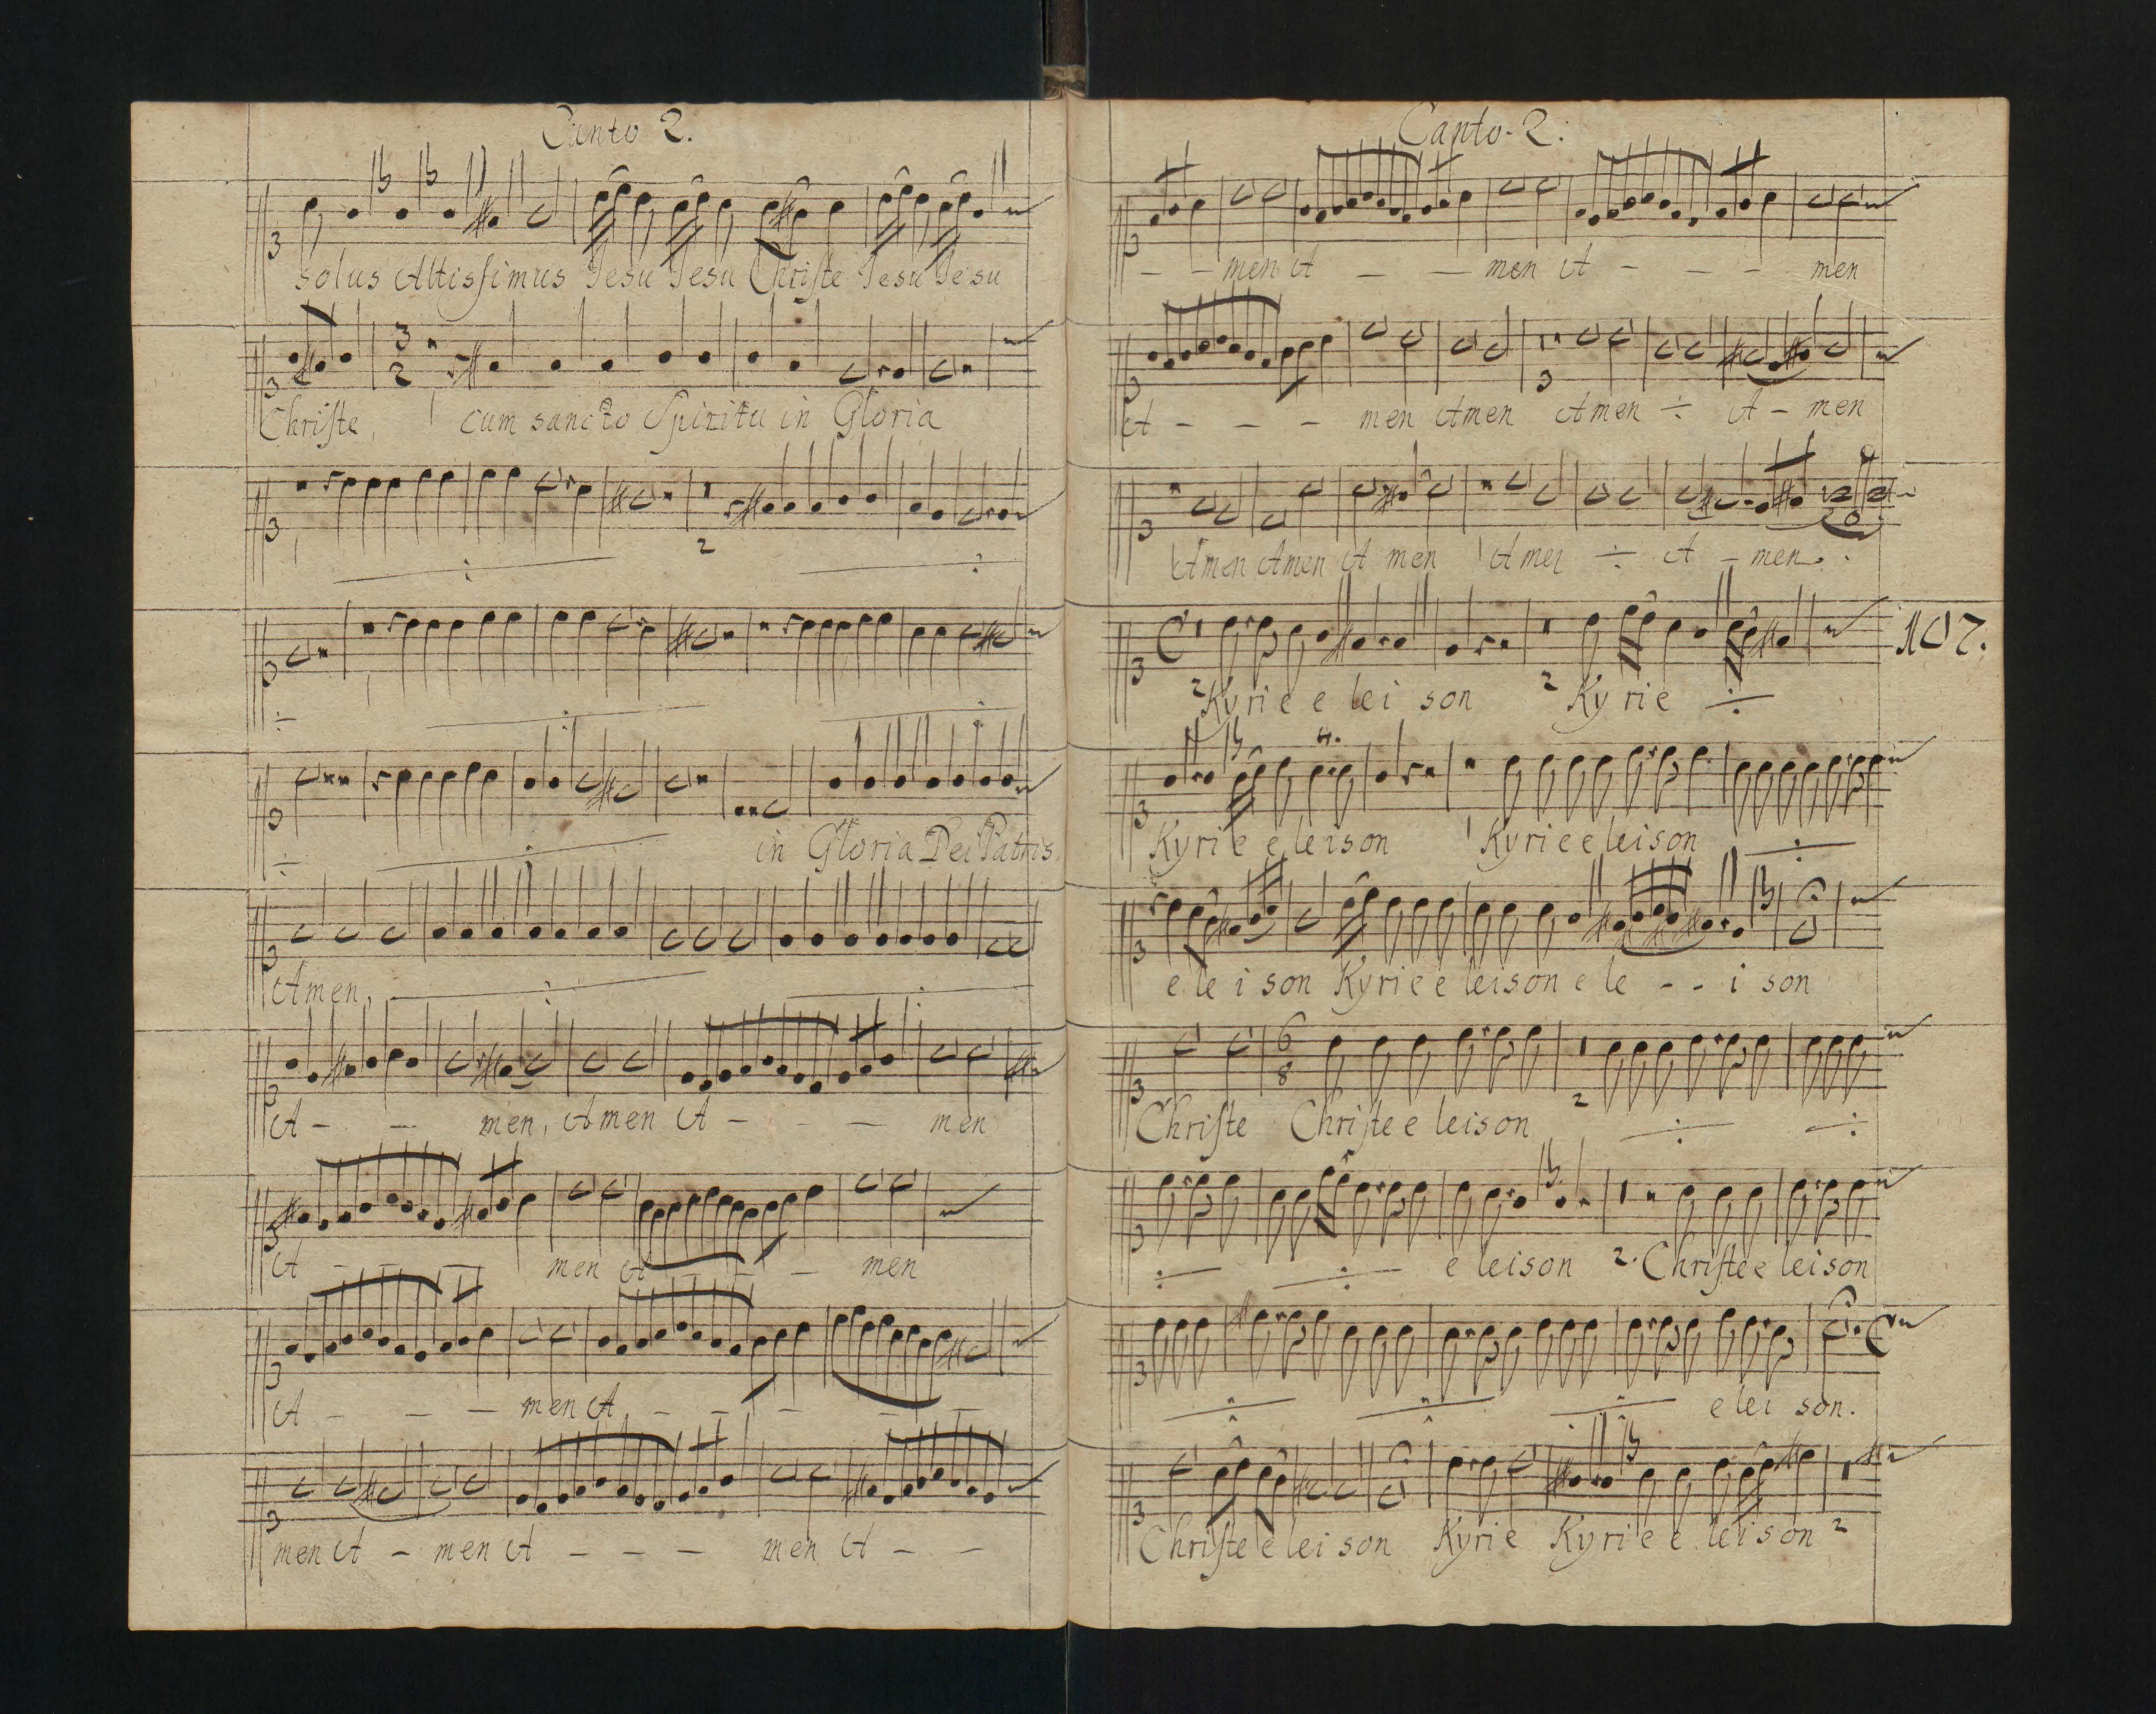 Canto 2.
solus Altissimus Jesu Jesu Christe Jesu Jesu
3
2
Christe, cum sancto Spiritu in Gloria
2
÷ ÷
÷ ÷ ÷
÷ ÷ in Gloria Dei Patris
Amen, ÷ ÷
A - - men, Amen A - - - men
A - - - men A - - men
A - - - men A - - - - -
men A - men A - - - men A - -
Canto. 2.
- - men A - - men A - - - men
3
A - - - men Amen Amen ÷ A - men
Amen Amen A men Amen ÷ A - men.
107.
2 Kyrie e lei son 2 Ky rie ÷
Kyrie e leison Kyrie e leison ÷
e le i son Kyrie e leison e le - - i son
6
8
2
Christe Christe e leison ÷ ÷
÷ ÷ e leison 2. Christe e leison
÷ ÷ ÷ e lei son.
Christe e lei son Kyrie Kyrie e leison 2